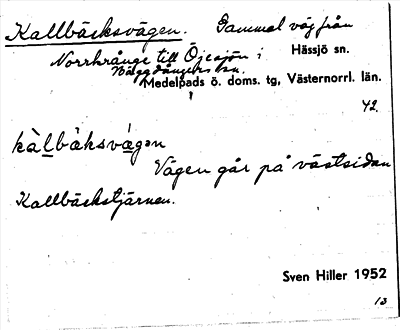 Kallbäcksvägen. Gammal väg från
Norrkrånge till Öjesjön i Hässjö sn.
Häggdångers sn.
Medelpads ö. doms. tg, Västernorrl. län.
42.
kàl̲bäksvä̲gən
Vägen går på västsidan
Kallbäckstjärnen.
Sven Hiller 1952
13